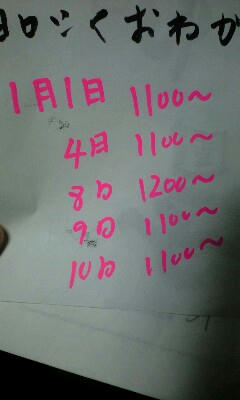 くおわが
1月1日 1100~
4日 1100~
8日 1200~
9日 1100~
10日 1100~